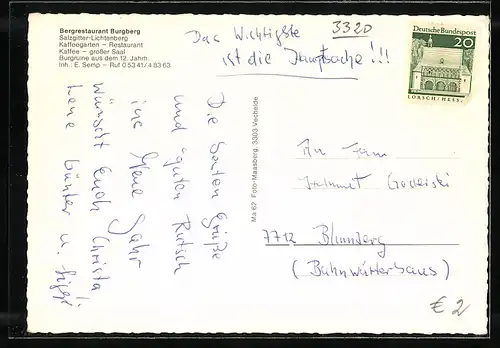 Bergrestaurant Burgberg
Salzgitter-Lichtenberg
Kaffeegarten – Restaurant
Kaffee – großer Saal
Burgruine aus dem 12. Jahrh.
Inh.: E. Semp – Ruf 0 53 41 / 4 83 63
Das Wichtigste
ist die Hauptsache!!!
3320
Deutsche Bundespost
20
LORSCH/HESS.
Die besten Grüße
und "guten Rutsch
ins Neue Jahr
wünscht Euch Christa
Lene Günter u.
Ma 62 Foto-Maasberg, 3303 Vechelde
An Fam.
Helmut
7712 Blumberg
(Bahnwärterhaus)
€ 2